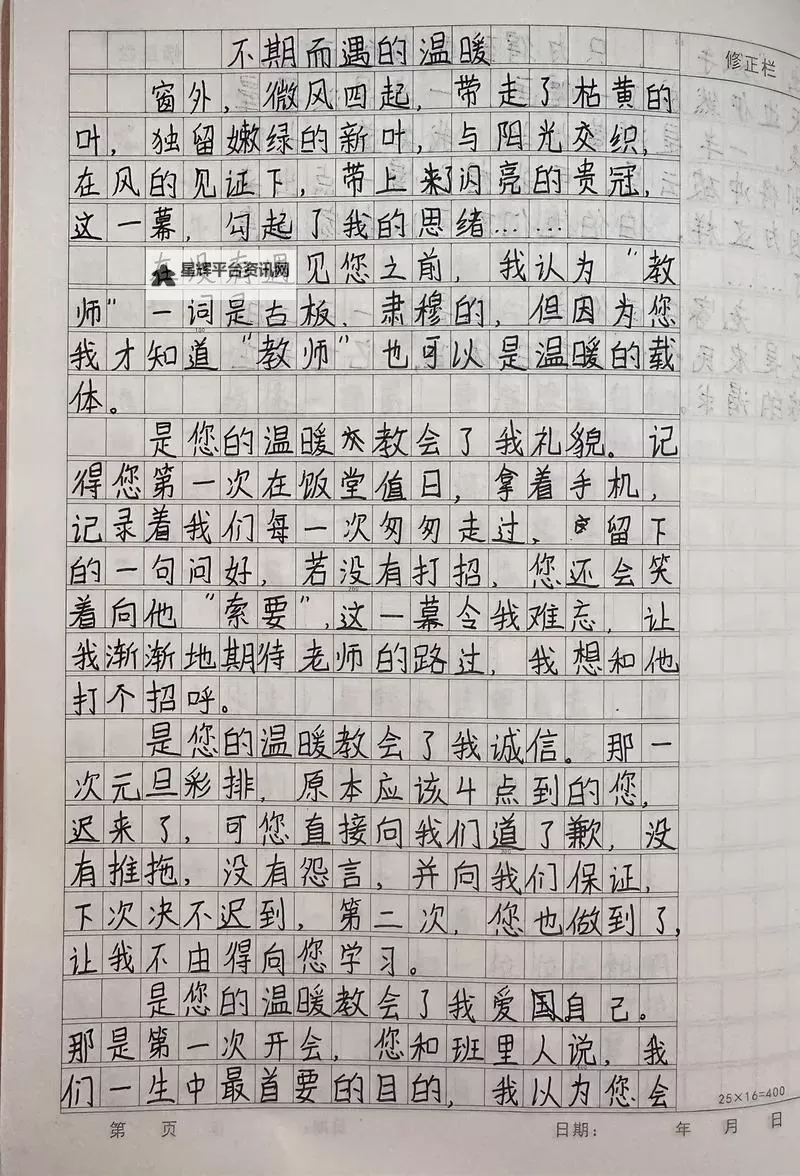 不期而遇的温暖
修正栏
窗外，微风四起，带走了枯黄的
叶，独留嫩绿的新叶，与阳光交织，
在风的见证下，带上来了闪亮的贵冠，
这一幕，勾起了我的思绪……
星辉平台资讯网
见您之前，我认为“教
师”一词是古板、肃穆的，但因为您
我才知道“教师”也可以是温暖的载
体。
是您的温暖教会了我礼貌。记
得您第一次在饭堂值日，拿着手机，
记录着我们每一次匆匆走过，留下
的一句问好，若没有打招，您还会笑
着向他“索要”，这一幕令我难忘，让
我渐渐地期待老师的路过，我想和他
打个招呼。
是您的温暖教会了我诚信。那一
次元旦彩排，原本应该4点到的您，
迟来了，可您直接向我们道了歉，没
有推拖，没有怨言，并向我们保证，
下次决不迟到，第二次，您也做到了，
让我不由得向您学习。
是您的温暖教会了我爱国自己。
那是第一次开会，您和班里人说，我
们一生中最首要的目的，我以为您会
25×16=400
第 页 日期： 年 月 日